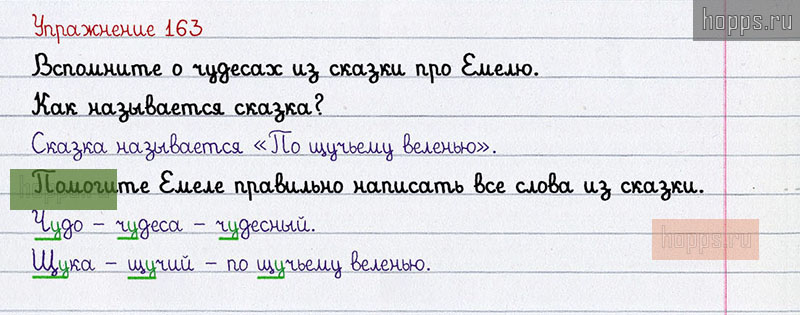 Упражнение 163
hopps.ru
Вспомните о чудесах из сказки про Емелю.
Как называется сказка?
Сказка называется «По щучьему веленью».
Помогите Емеле правильно написать все слова из сказки.
Чудо – чудеса – чудесный.
hopps.ru
Щука – щучий – по щучьему веленью.